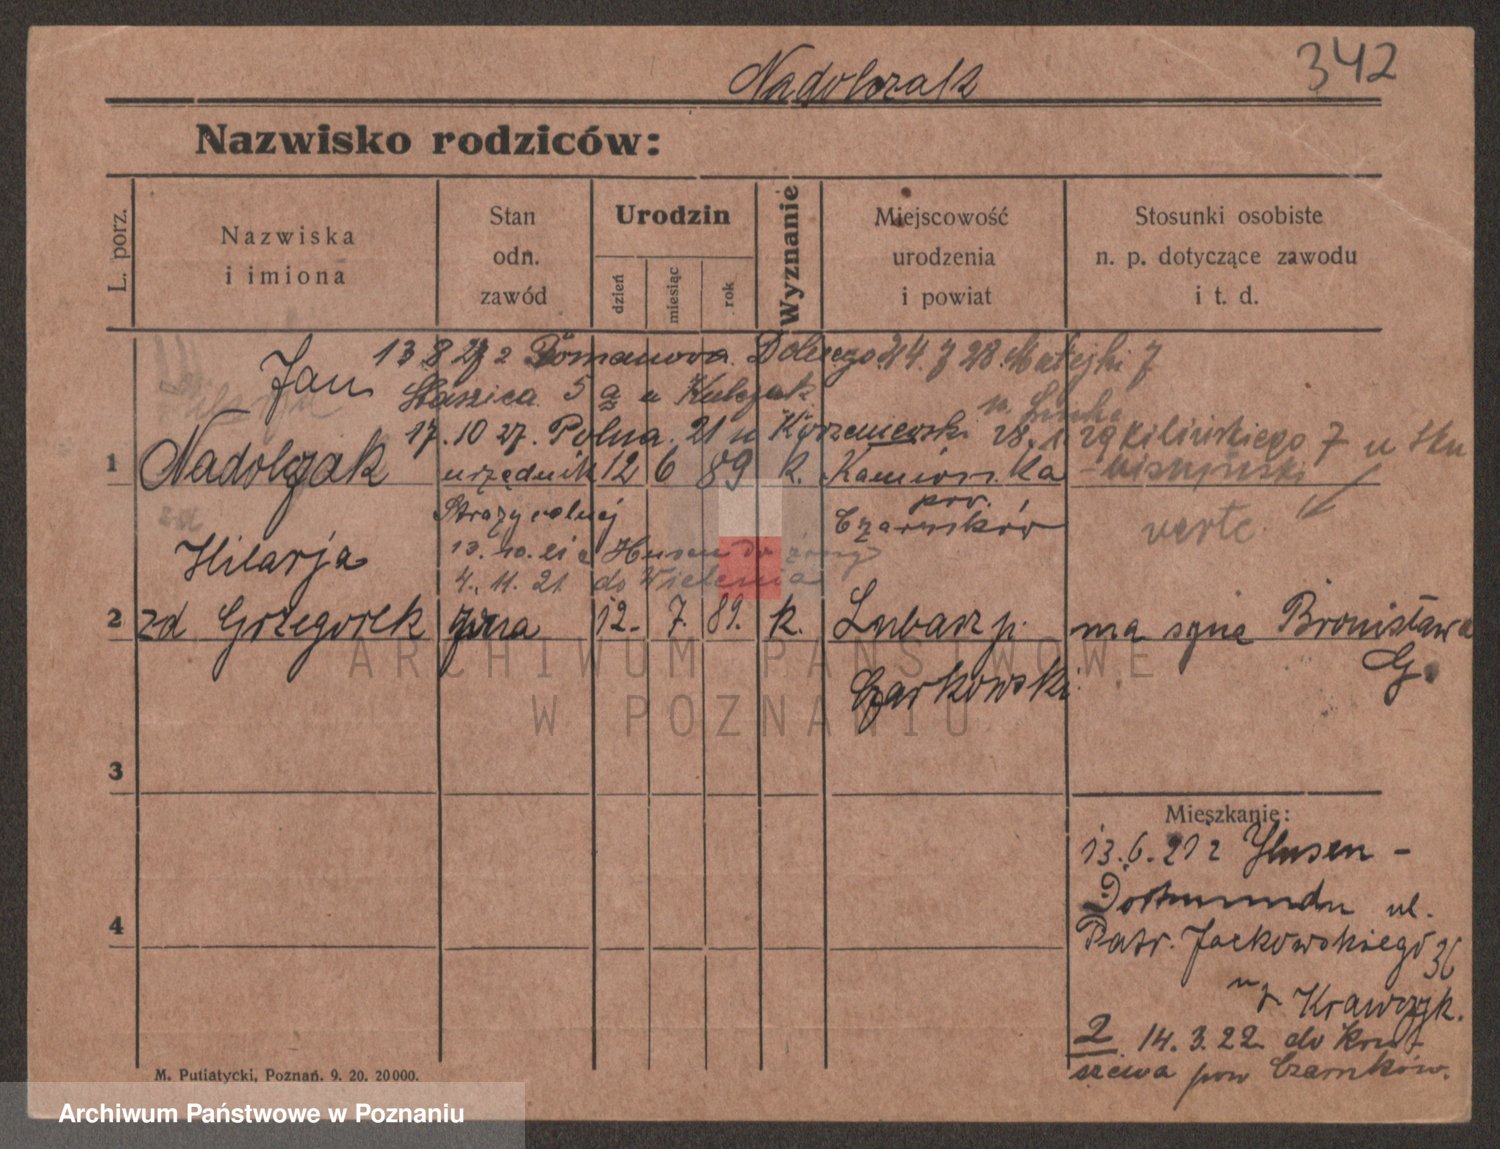 342
Nadolczak
Nazwisko rodziców:
L. porz.
Nazwiska
i imiona
Stan
odn.
zawód
Urodzin
dzień
miesiąc
rok
Wyznanie
Miejscowość
urodzenia
i powiat
Stosunki osobiste
n. p. dotyczące zawodu
i t. d.
Jan 13 8 27 z 24. 7 28. Matejki 7
Staszica 5 u Kubczak
17. 10 27. Polna 21 u 28. 1. 29 Kilińskiego 7 u
1 Nadolczak urzędnik 12 6 89 k. Kamionka
pow.
Straży celnej Czarnków verte
Hilarja 13. 10. 21 z Husen do
4. 11. 21 do Wielenia
2 zd Grzegorek żona 12. 7. 89. k. Lubasz p. ma syna Bronisława
Czarkowski G.
3
Mieszkanie:
13. 6. 21 z Husen -
4 Dortmundu ul.
Patr. Jackowskiego 36
u Krawczyk.
2 14. 3. 22 do Kru-
szewa pow Czarnków.
M. Putiatycki, Poznań. 9. 20. 20000.
ARCHIWUM PAŃSTWOWE
W POZNANIU
Archiwum Państwowe w Poznaniu